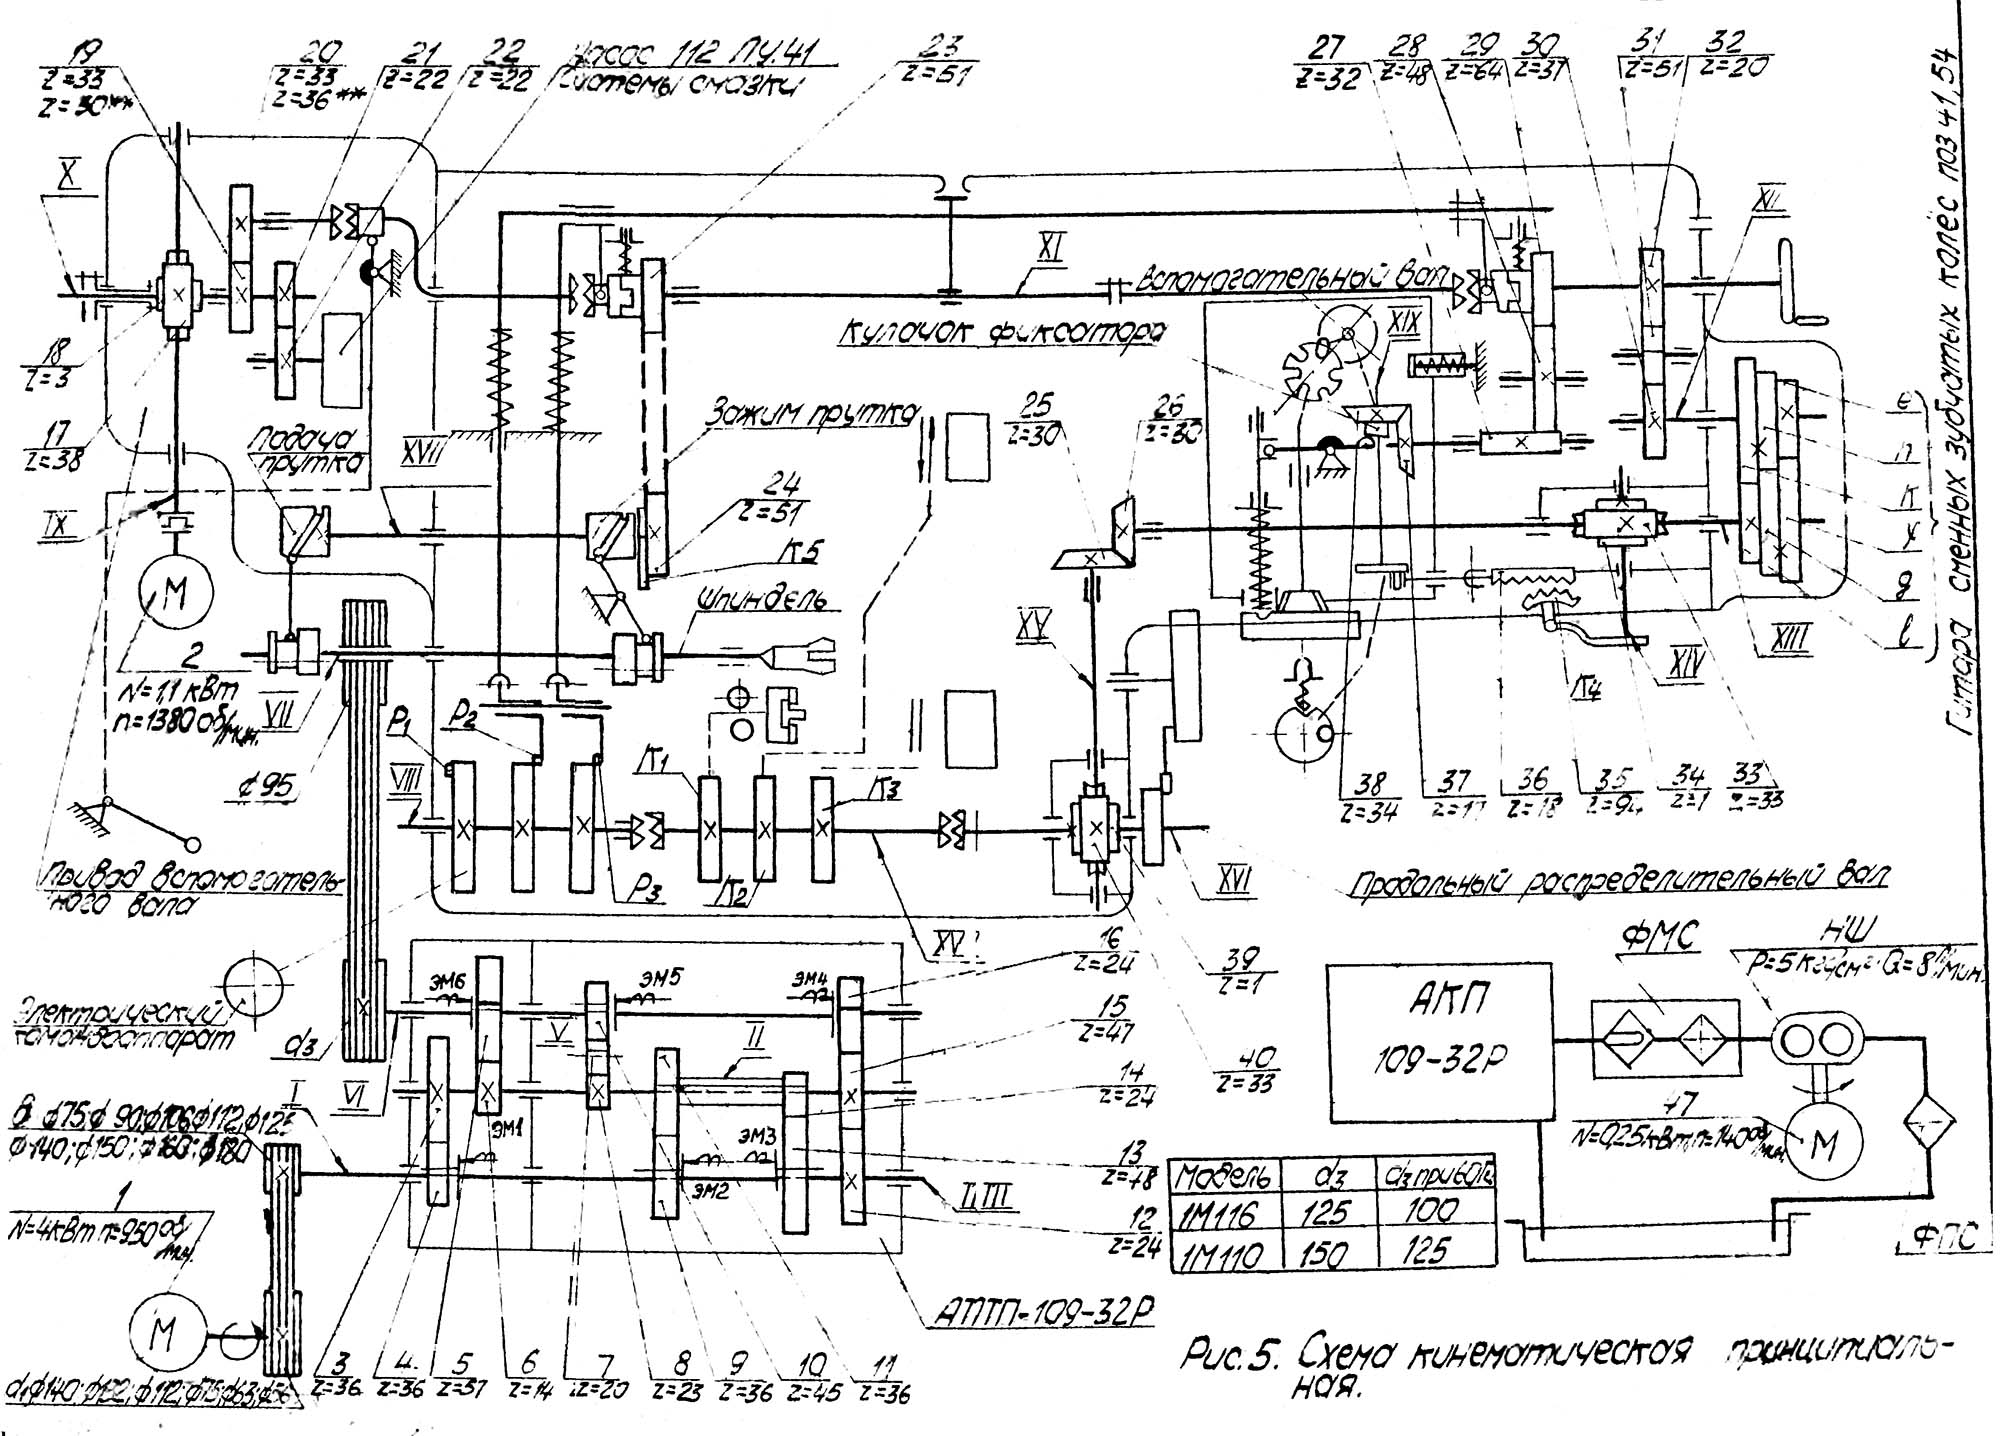 19
z=33
z=30**
20
z=33
z=36**
21
z=22
22
z=22
Насос 112 ЛУ.41
Системы смазки
23
z=51
27
z=32
28
z=48
29
z=64
30
z=37
31
z=51
32
z=20
X
XI
Вспомагательный вал
XII
Кулачок фиксатора
XIX
18
z=3
17
z=38
Подача
прутка
XVII
Зажим прутка
25
z=30
26
z=30
24
z=51
К5
е
п
К
У
д
в
Гитара сменных зубчатых колёс поз 41,54
IX
М
2
N=1,1 кВт
n=1380 об/мин.
VII
Шпиндель
XV
К4
XIV
XIII
ϕ95
P1
P2
VIII
К1
К2
К3
P3
38
z=34
37
z=17
36
z=18
35
34
z=1
33
z=33
Привод вспомогатель-
ного вала
XVI
Продольный распределительный вал
Электрический
командоаппарат
d3
ЭМ6
ЭМ5
ЭМ4
V
II
16
z=24
39
z=1
15
z=47
40
z=33
14
z=24
ФМС
НШ
P=5 кгс/см² Q=8 л/мин.
АКП
109-32Р
47
М
I
VI
ϕ75; ϕ90; ϕ106; ϕ112; ϕ125
ϕ140; ϕ150; ϕ160; ϕ180
ЭМ1
ЭМ3
ЭМ2
13
z=48
12
z=24
Модель d3 d3 привода
1М116 125 100
1М110 150 125
ФПС
1
N=4кВт n=950 об/мин.
М
АПТП-109-32Р
3
z=36
4
z=36
5
z=57
6
z=14
7
z=20
8
z=23
9
z=36
10
z=45
11
z=36
Рис. 5. Схема кинематическая принципиаль-
ная.